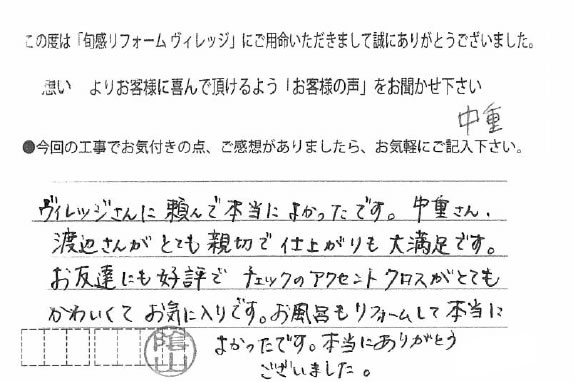 この度は「旬感リフォーム ヴィレッジ」にご用命いただきまして誠にありがとうございました。
想い よりお客様に喜んで頂けるよう「お客様の声」をお聞かせ下さい
中重
●今回の工事でお気付きの点、ご感想がありましたら、お気軽にご記入下さい。
ヴィレッジさんに頼んで本当によかったです。中重さん、
渡辺さんがとても親切で仕上がりも大満足です。
お友達にも好評でチェックのアクセントクロスがとても
かわいくてお気に入りです。お風呂もリフォームして本当に
よかったです。本当にありがとう
ございました。